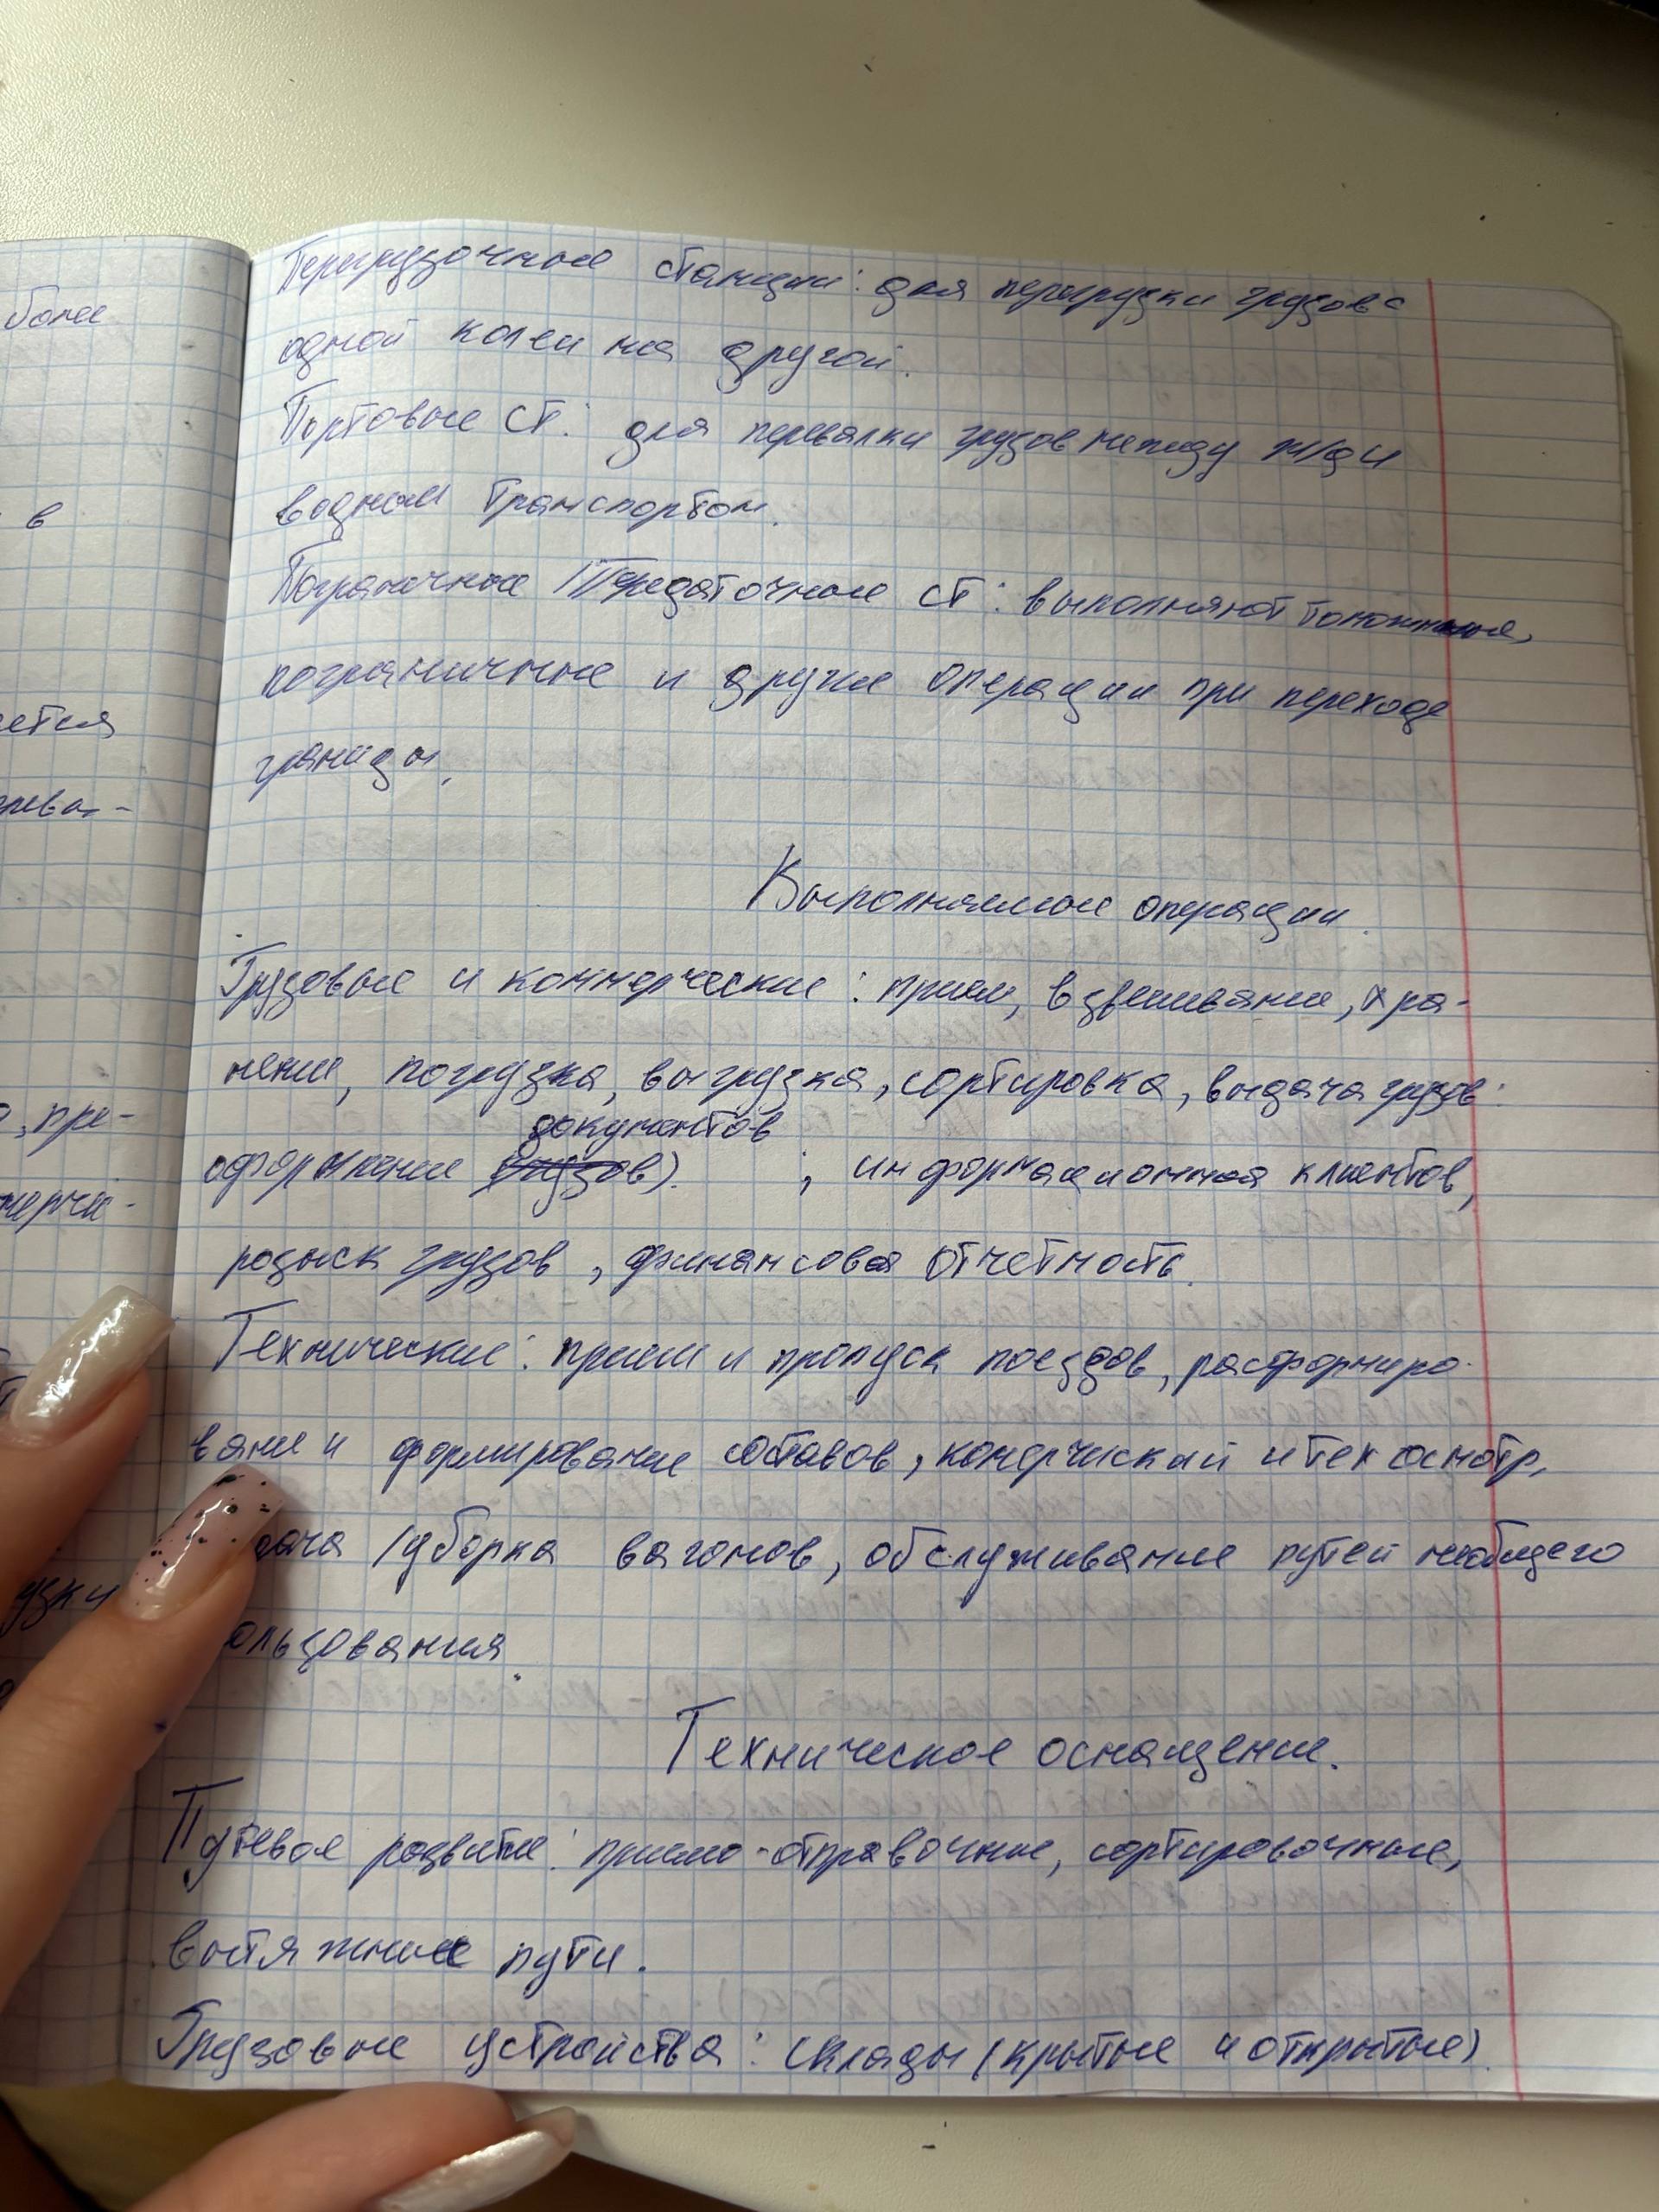 более
в
ется
, пре-
Перегрузочные станции: для перегрузки грузов с
одной колеи на другой.
Портовые ст: для перевалки грузов между ж/д и
водным транспортом.
Пограничные / Передаточные ст: выполняют таможенные,
пограничные и другие операции при переходе
границы.
Выполняемые операции.
Грузовые и коммерческие: прием, взвешивание, хра-
нение, погрузка, выгрузка, сортировка, выдача грузов:
документов
оформление грузов). ; информационная клиентов,
розыск грузов, финансовая отчетность.
Технические: прием и пропуск поездов, расформиро-
вание и формирование составов, комерческий и тех осмотр,
дача /уборка вагонов, обслуживание путей необщего
ользования.
Техническое оснащение.
Путевое развитие: приемо-отправочные, сортировочные,
вытяжные пути.
Грузовые устройства: склады (крытые и открытые).